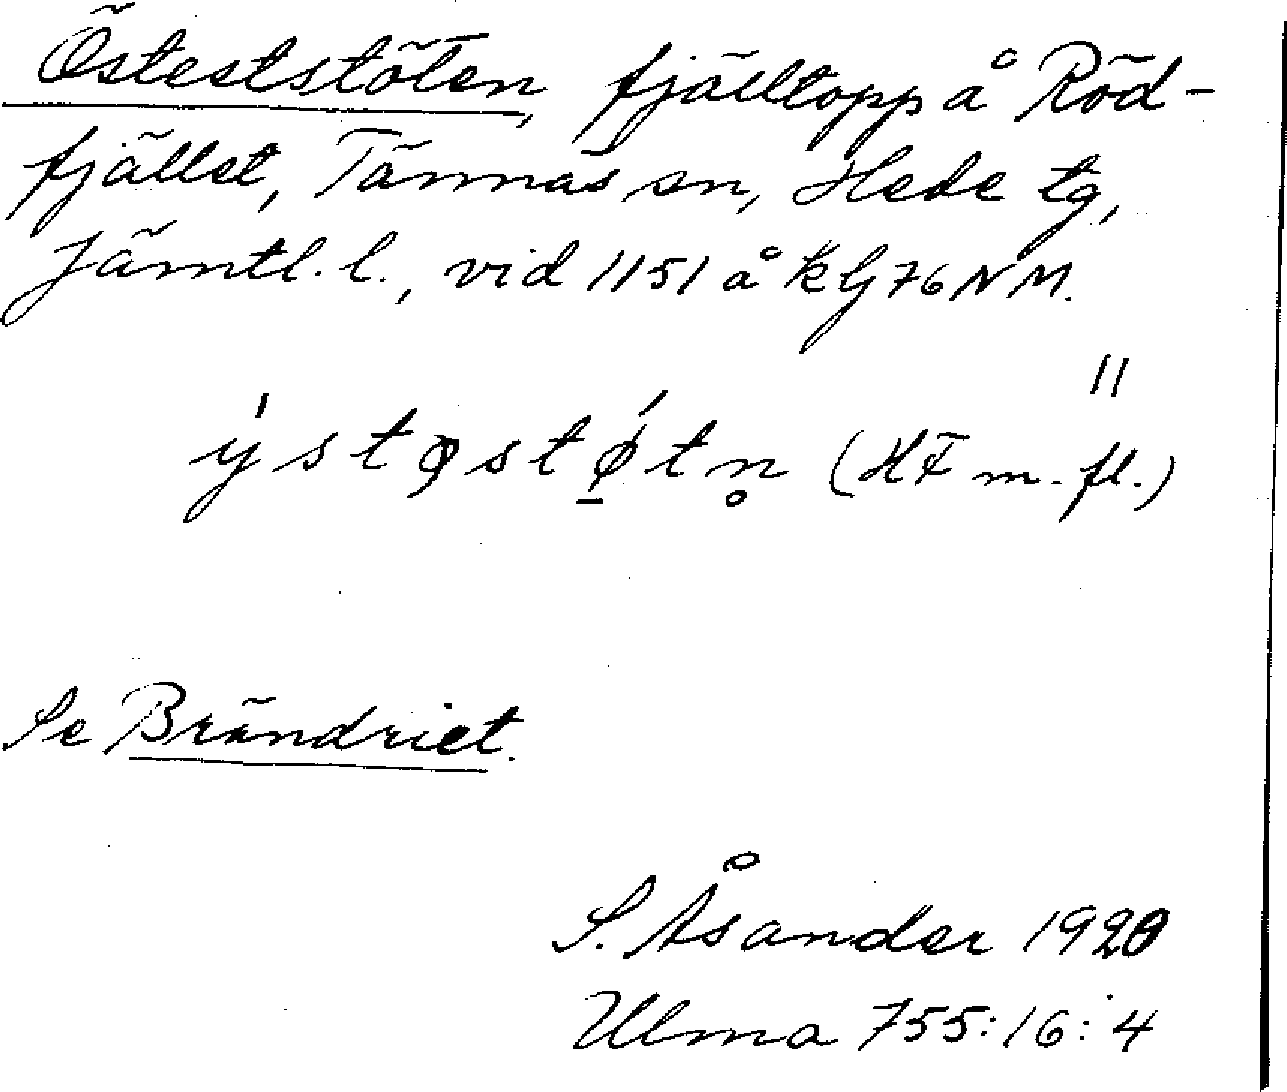 Östeststöten, fjälltopp å Röd-
fjället, Tännäs sn, Hede tg,
Jämtl. l., vid 1151 å kbl 76 NM.
"
ýstǫstǿ̱tn̥ (HF m. fl.)
Se Brändriet.
S. Åsander 1920
Ulma 755:16:4